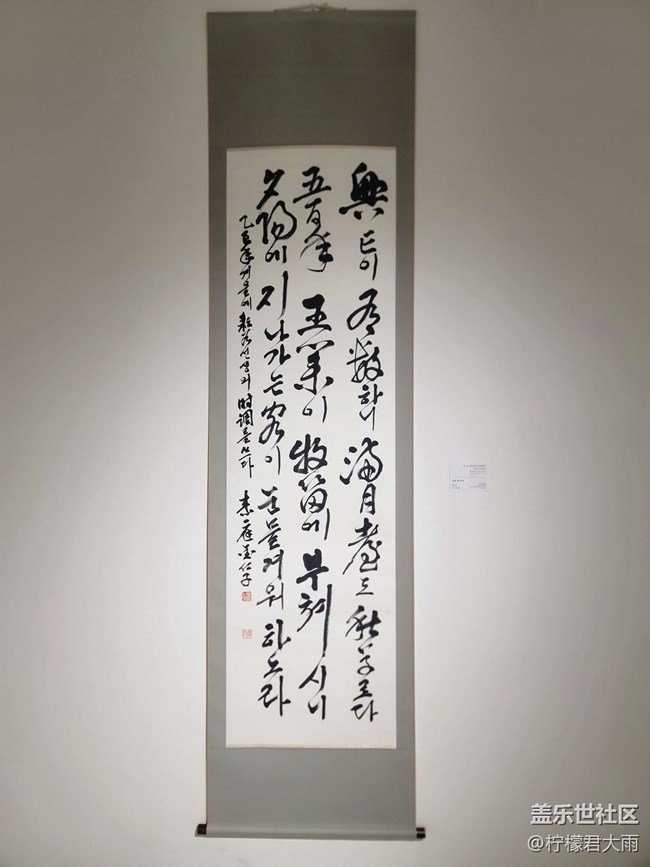 興亡이 有數하니 滿月臺도 秋草로다
五百年 王業이 牧笛에 부쳐시니
夕陽에 지나가는 客이 눈물겨워 하노라
乙巳年 겨울에 耘谷선생의 時調를 쓰다 素庭
盖乐世社区
@柠檬君大雨